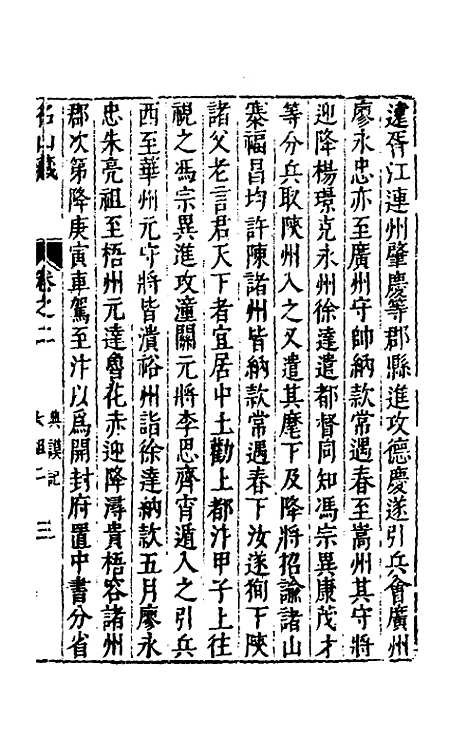 建胥江連州肇慶等郡縣進攻德慶遂引兵會廣州
廖永忠亦至廣州守帥納款常遇春至嵩州其守將
迎降楊璟克永州徐達遣都督同知馮宗異康茂才
等分兵取陝州入之又遣其麾下及降將招諭諸山
寨福昌均許陳諸州皆納款常遇春下汝遂徇下陝
諸父老言君天下者宜居中土勸上都汴甲子上往
視之馮宗異進攻潼關元將李思齊宵遁入之引兵
西至華州元守將皆潰裕州詣徐達納款五月廖永
忠朱亮祖至梧州元達魯花赤迎降潯貴梧容諸州
郡次第降庚寅車駕至汴以為開封府置中書分省
名山藏 卷之二 典謨記 太祖二 三